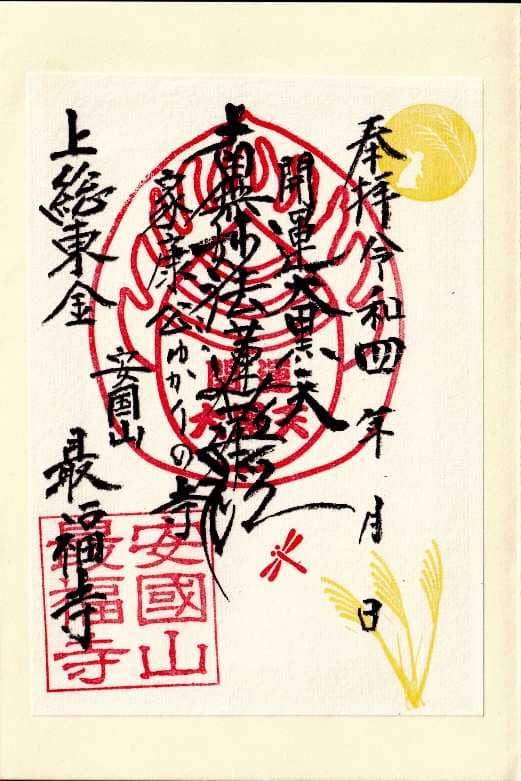 奉拝 令和四年 月 日
開運大黒天
南無妙法蓮華経
家康公ゆかりの寺
安国山
上総東金 最福寺
開運
大黒天
安國山
最福寺